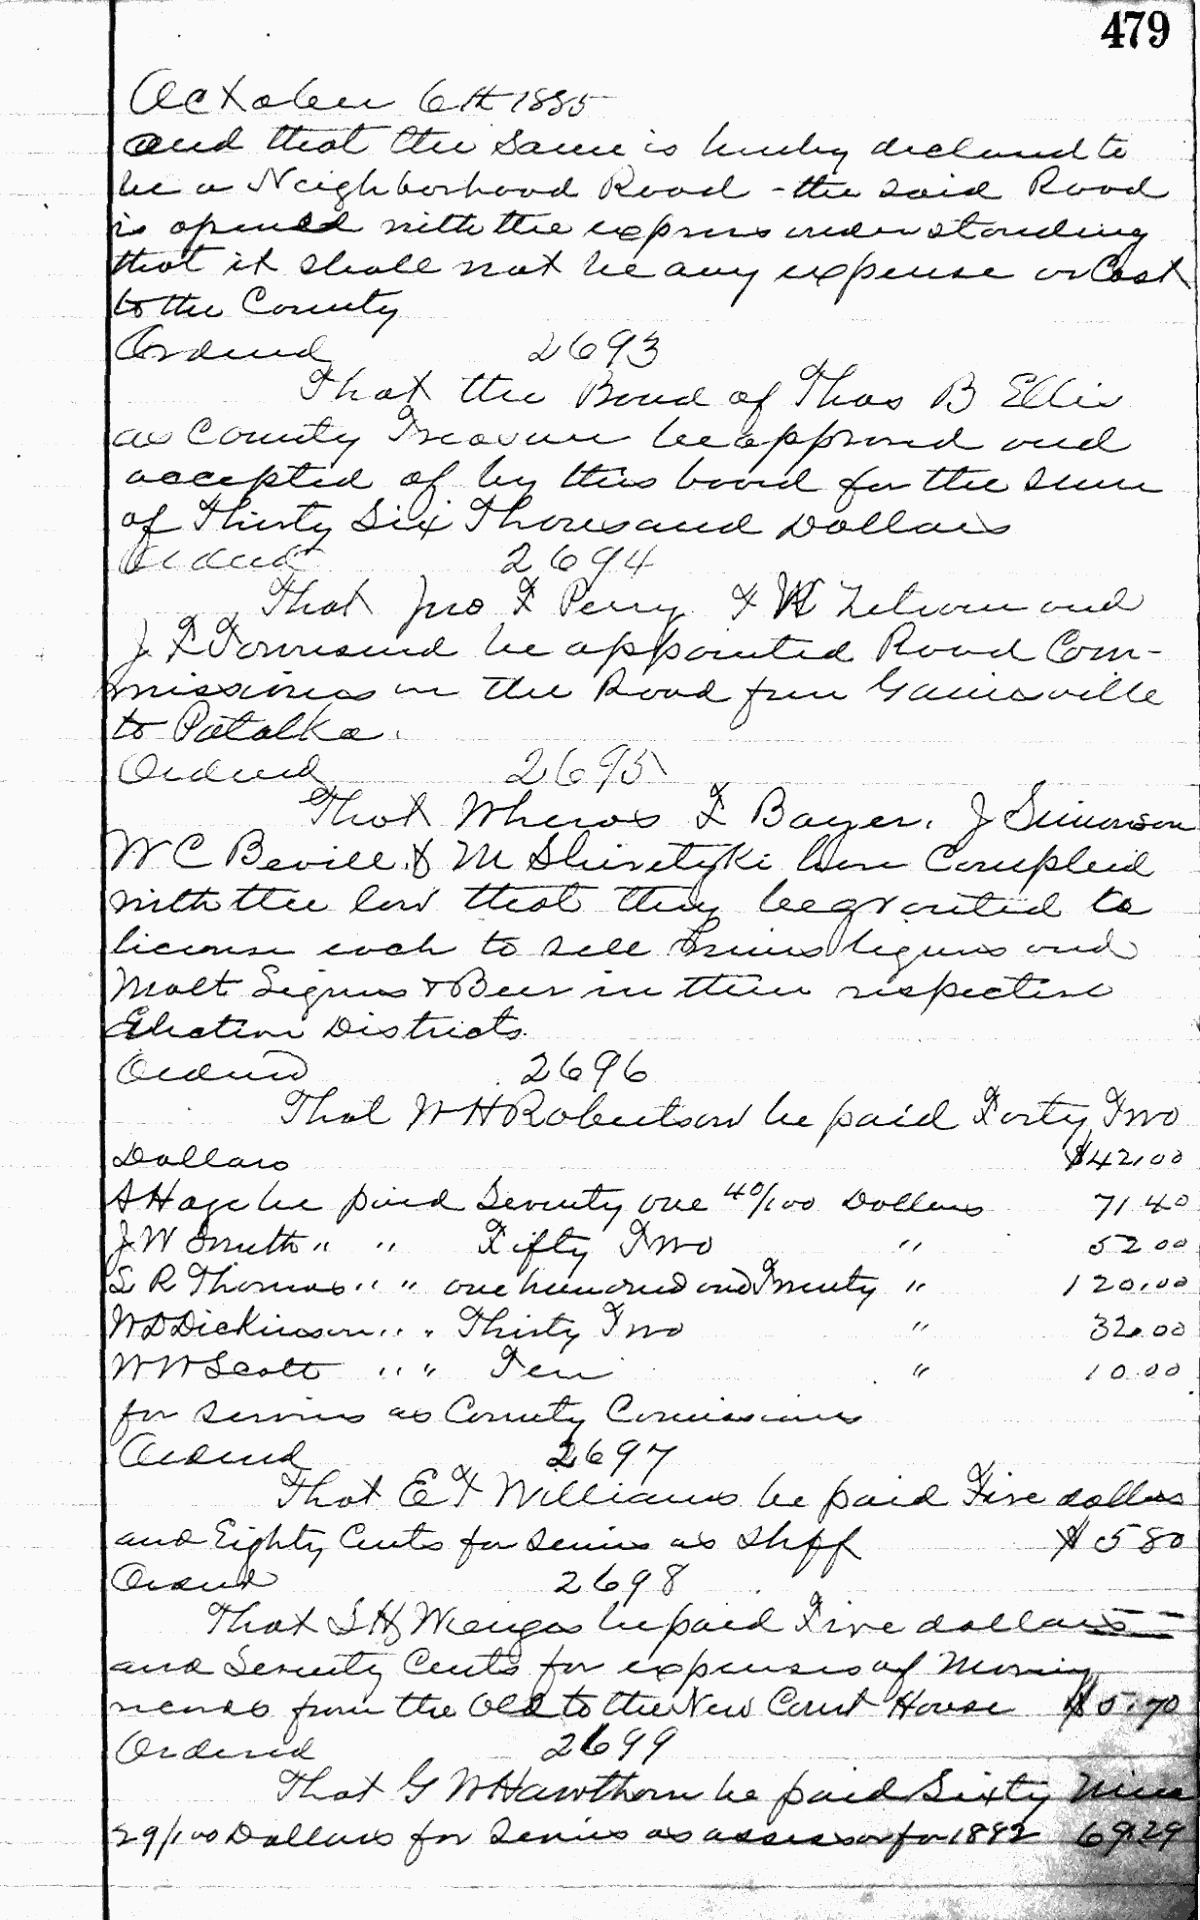 479
October 6th 1885
and that the Same is hereby declared to
be a Neighborhood Road - the said Road
is opened with the express understanding
that it shall not be any expense or Cost
to the County
Ordered 2693
That the Bond of Thos B Ellis
as County Treasurer be approved and
accepted of by this board for the sum
of Thirty Six Thousand Dollars
Ordered 2694
That Jno F Perry F W and
J F Townsend be appointed Road Com-
missioners on the Road from Gainesville
to Palatka.
Ordered 2695
That Whereas F Bayer. J Simonson
W C Bevill & M have Complied
with the law that they be granted to
license each to sell liquors and
Malt Liquors & Beer in their respective
Election Districts.
Ordered 2696
That W H Robertson be paid Forty Two
Dollars $42.00
A Hage be paid Seventy one 40/100 Dollars 71 40
J W Smith " " Fifty Two " 52 00
S R Thomas " " one hundred and Twenty " 120.00
W D Dickinson " " Thirty Two " 32.00
W W Scott " " Ten " 10.00
for services as County Comissioners
Ordered 2697
That E T Williams be paid Five dollars
and Eighty Cents for services as Shff $5 80
Ordered 2698
That S H Wienges be paid Five dollars
and Seventy Cents for expenses of Moving
records from the Old to the New Court House $5.70
Ordered 2699
That G W Hawthorn be paid Sixty Nine
29/100 Dollars for Services as assessor for 1882 69.29